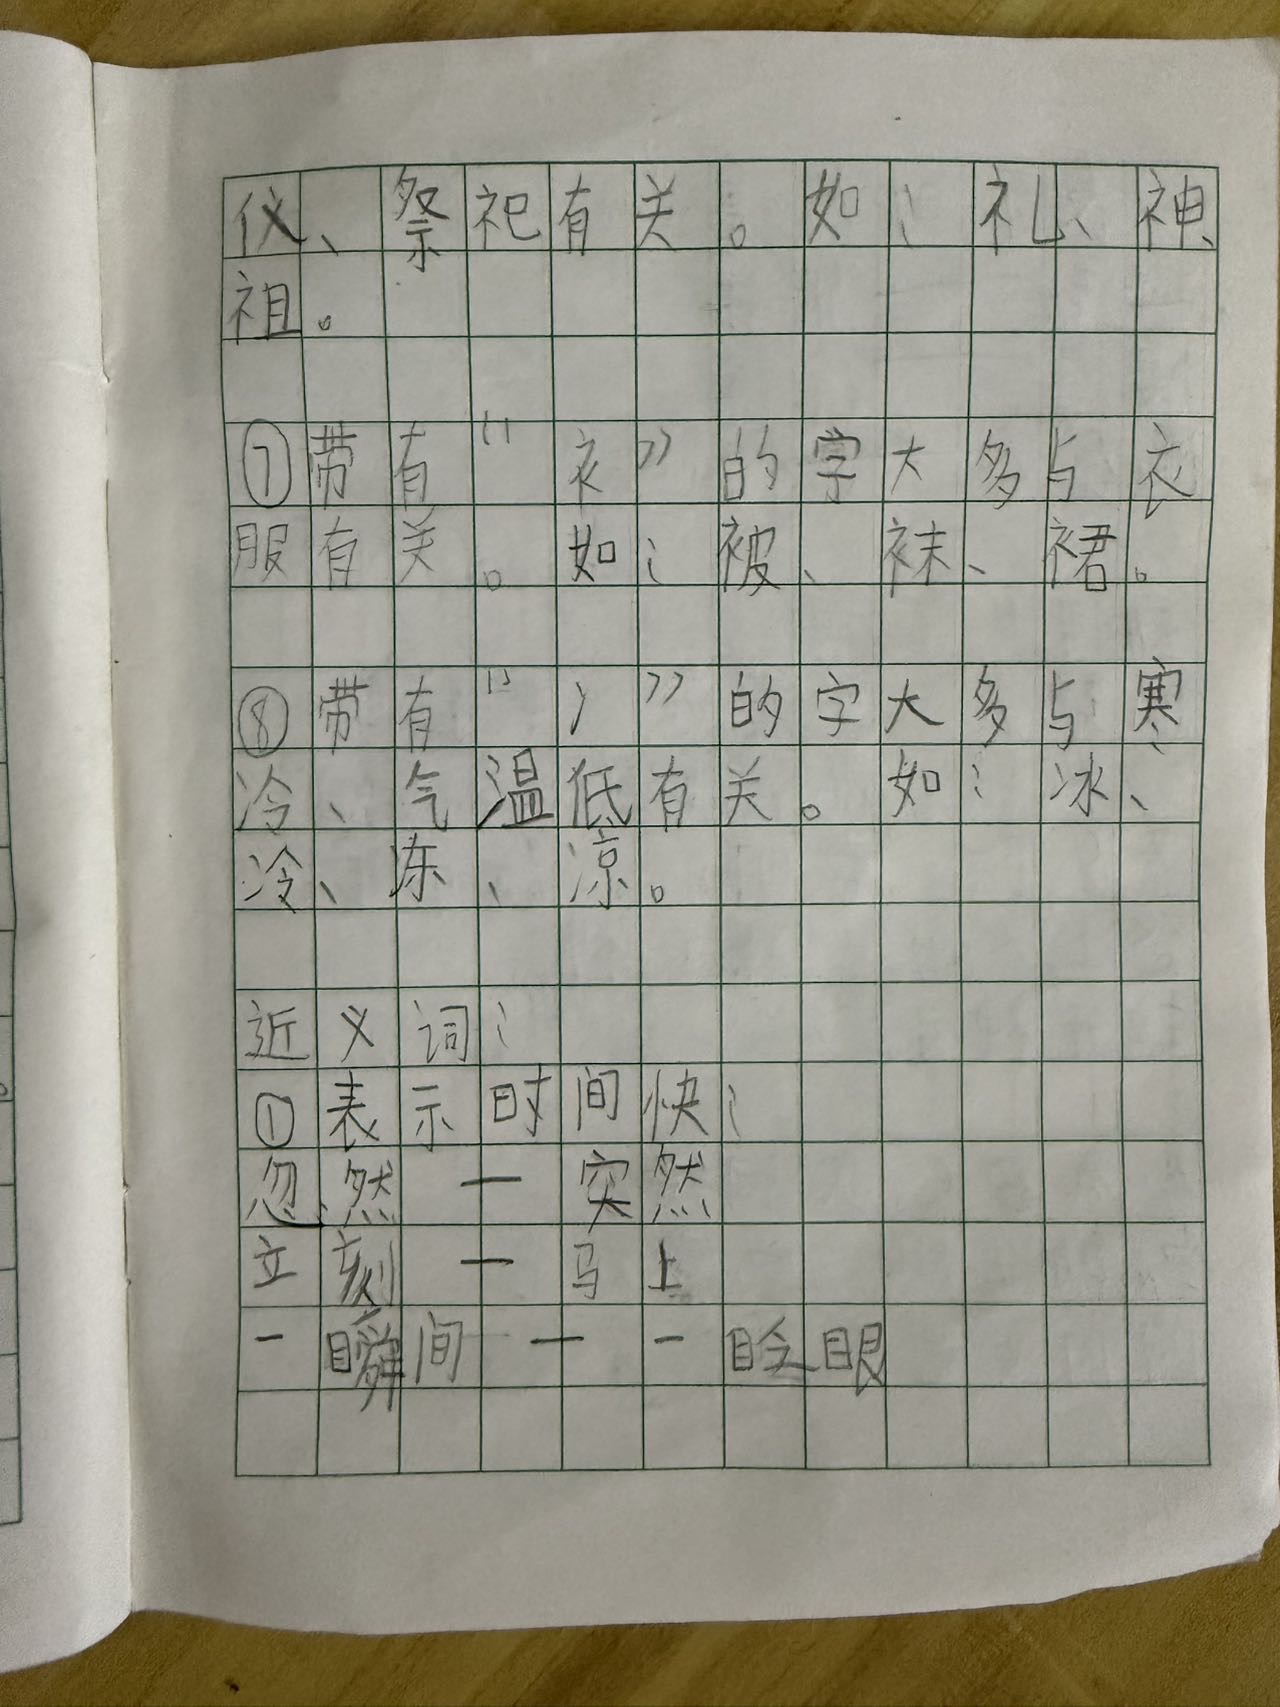 仪、祭祀有关。如：礼、神、
祖。
⑦带有“衤”的字大多与衣
服有关。如：被、袜、裙。
⑧带有“冫”的字大多与寒
冷、气温低有关。如：冰、
冷、冻、凉。
近义词：
①表示时间快：
忽然—突然
立刻—马上
一瞬间—一眨眼